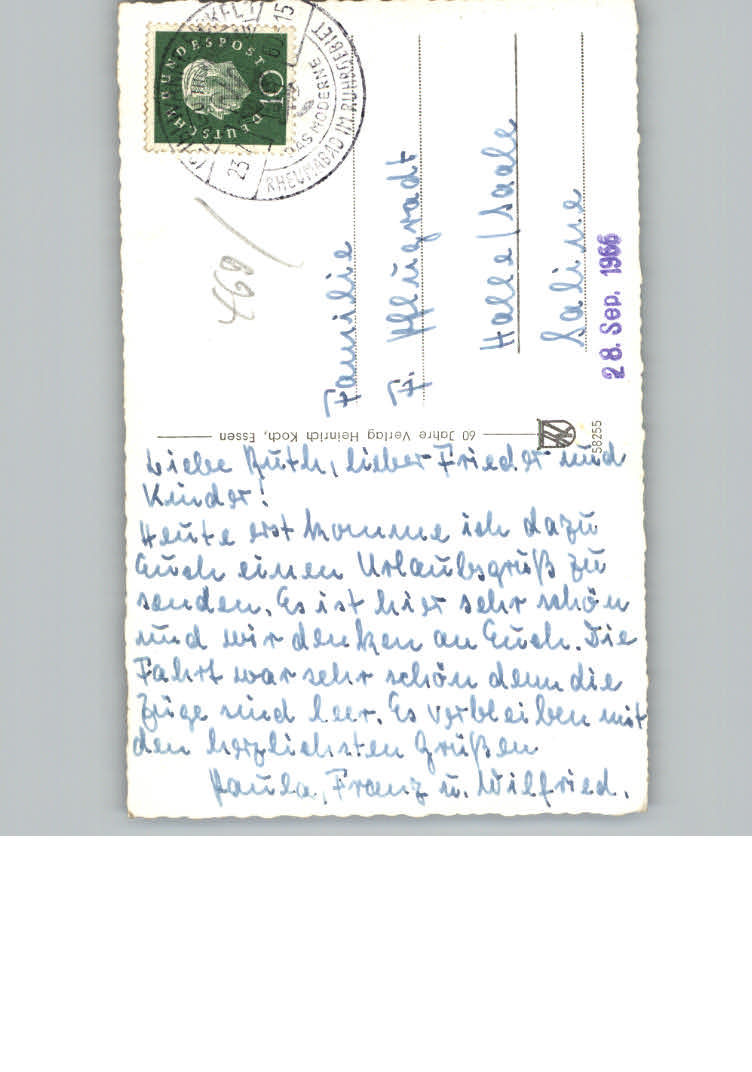 Liebe Ruth, lieber Frieder und
Kinder!
Heute erst komme ich dazu
Euch einen Urlaubsgruß zu
senden. Es ist hier sehr schön
und wir denken an Euch. Die
Fahrt war sehr schön denn die
Züge sind leer. Es verbleiben mit
den herzlichsten Grüßen
Paula, Franz u. Wilfried.
60 Jahre Verlag Heinrich Koch, Essen
58255
Familie
F. Pflugradt
Halle/Saale
Saline
28. Sep. 1966
469/
DEUTSCHE BUNDESPOST
10
DAS MODERNE
RHEUMABAD IM RUHRGEBIET